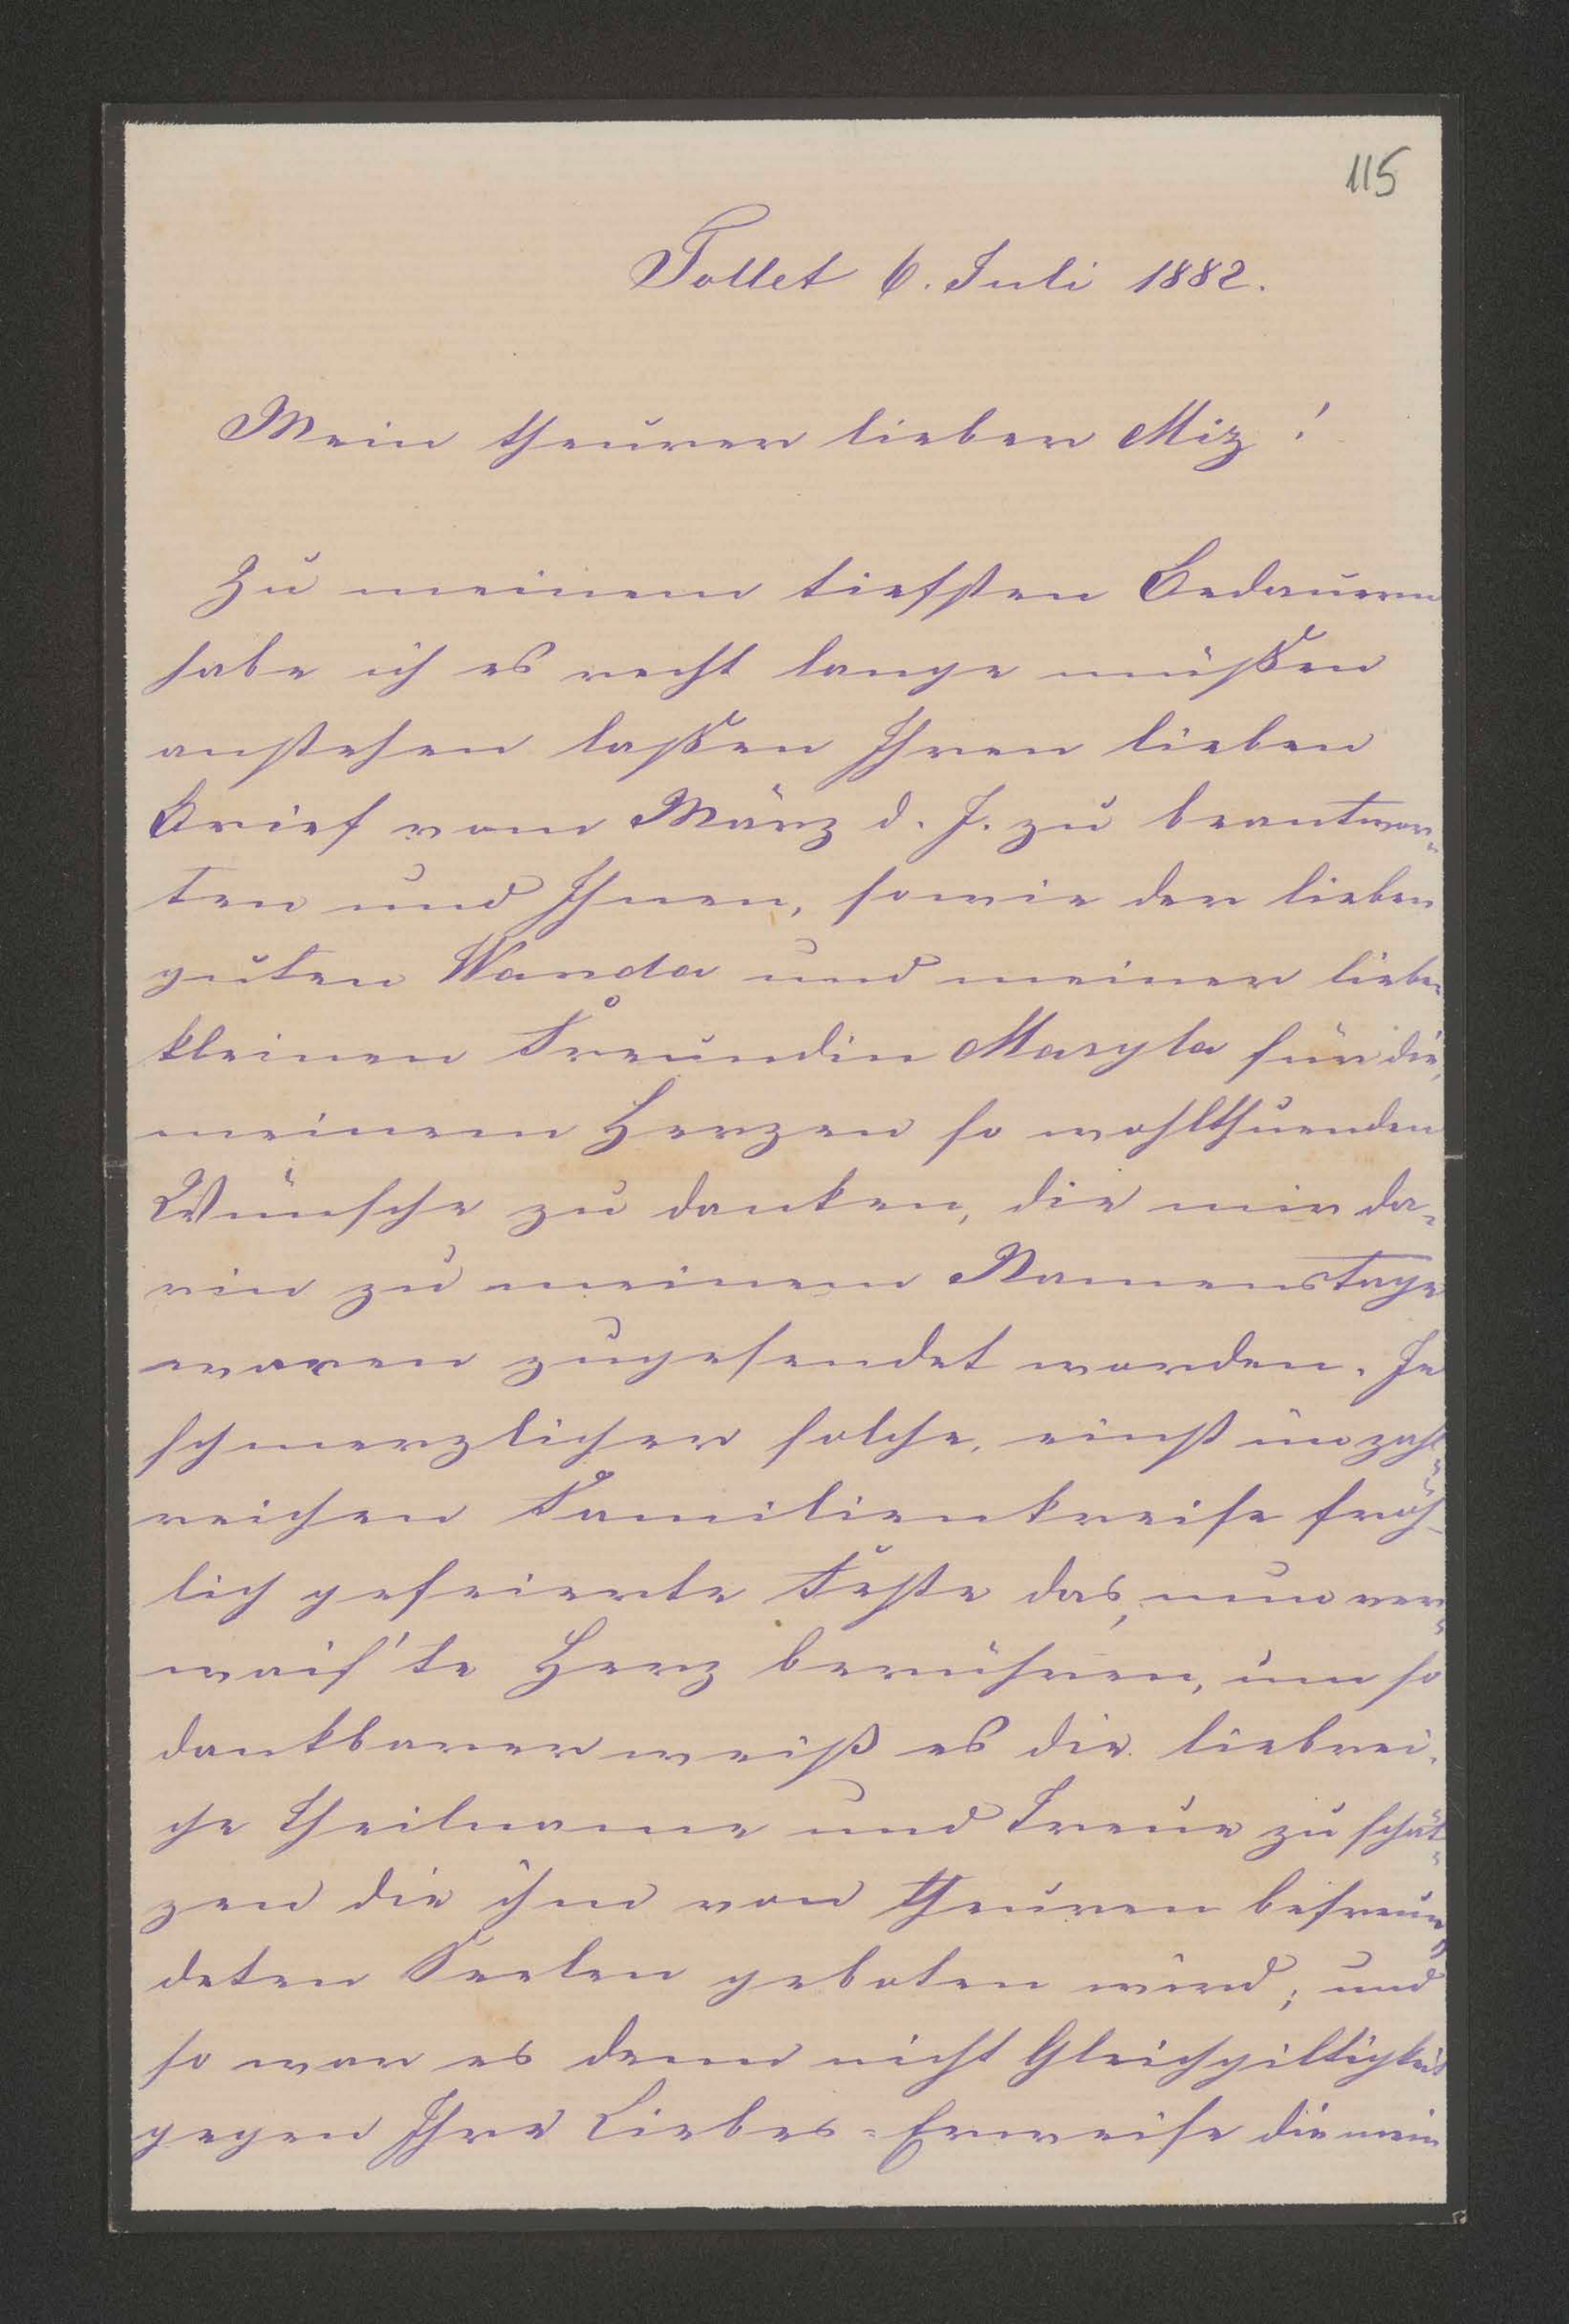 115
Tollet 6. Juli 1882.
Mein theurer lieber Miz!
Zu meinem tiefsten Bedauern
habe ich es recht lange müßen
anstehen laßen Ihren lieben
Brief vom März d. J. zu beantwor-
ten und Ihnen, sowie der lieben
guten Wanda und meiner lieben
kleinen Freundin Maryla für die,
meinem Herzen so wohlthuenden
Wünsche zu danken, die mir da-
rin zu meinem Namenstage
waren zugesendet worden. Je
schmerzlicher solche, einst im zahl-
reichen Familienkreise fröh-
lich gefeierte Feste das, nun ver-
wais'te Herz berühren, um so
dankbarer weiß es die liebrei-
che Theilname und Treue zu schät-
zen die ihm von theuren befreun-
deten Seelen geboten wird; und
so war es denn nicht Gleichgiltigkeit
gegen Ihre Liebes-Erweise die mein